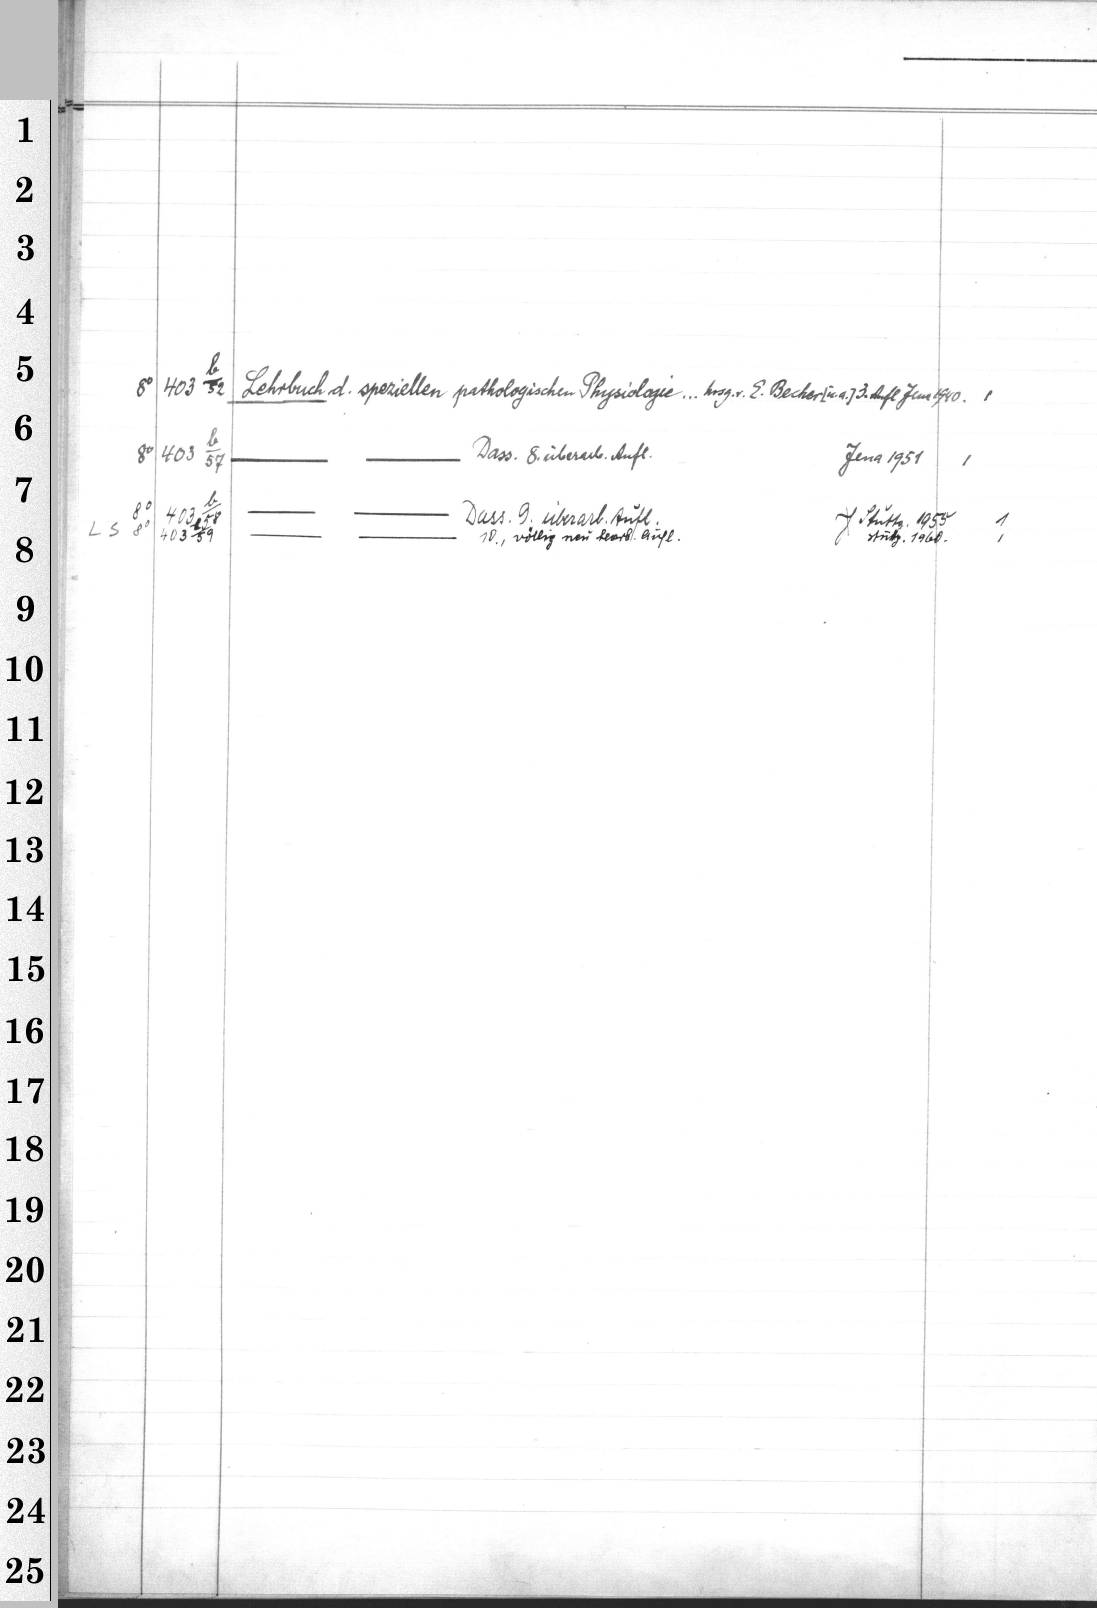 1
2
3
4
5
8° 403 b/52 Lehrbuch d. speziellen pathologischen Physiologie ... hrsg. v. E. Becher [u.a.] 3. Aufl Jena 1940. 1
6
8° 403 b/57 Dass. 8. überarb. Aufl. Jena 1951 1
7
8° 403 b/58 Dass. 9. überarb. Aufl. Stuttg. 1955 1
LS 8° 403 b/59 10., völlig neu bearb. Aufl. Stuttg. 1960. 1
8
9
10
11
12
13
14
15
16
17
18
19
20
21
22
23
24
25